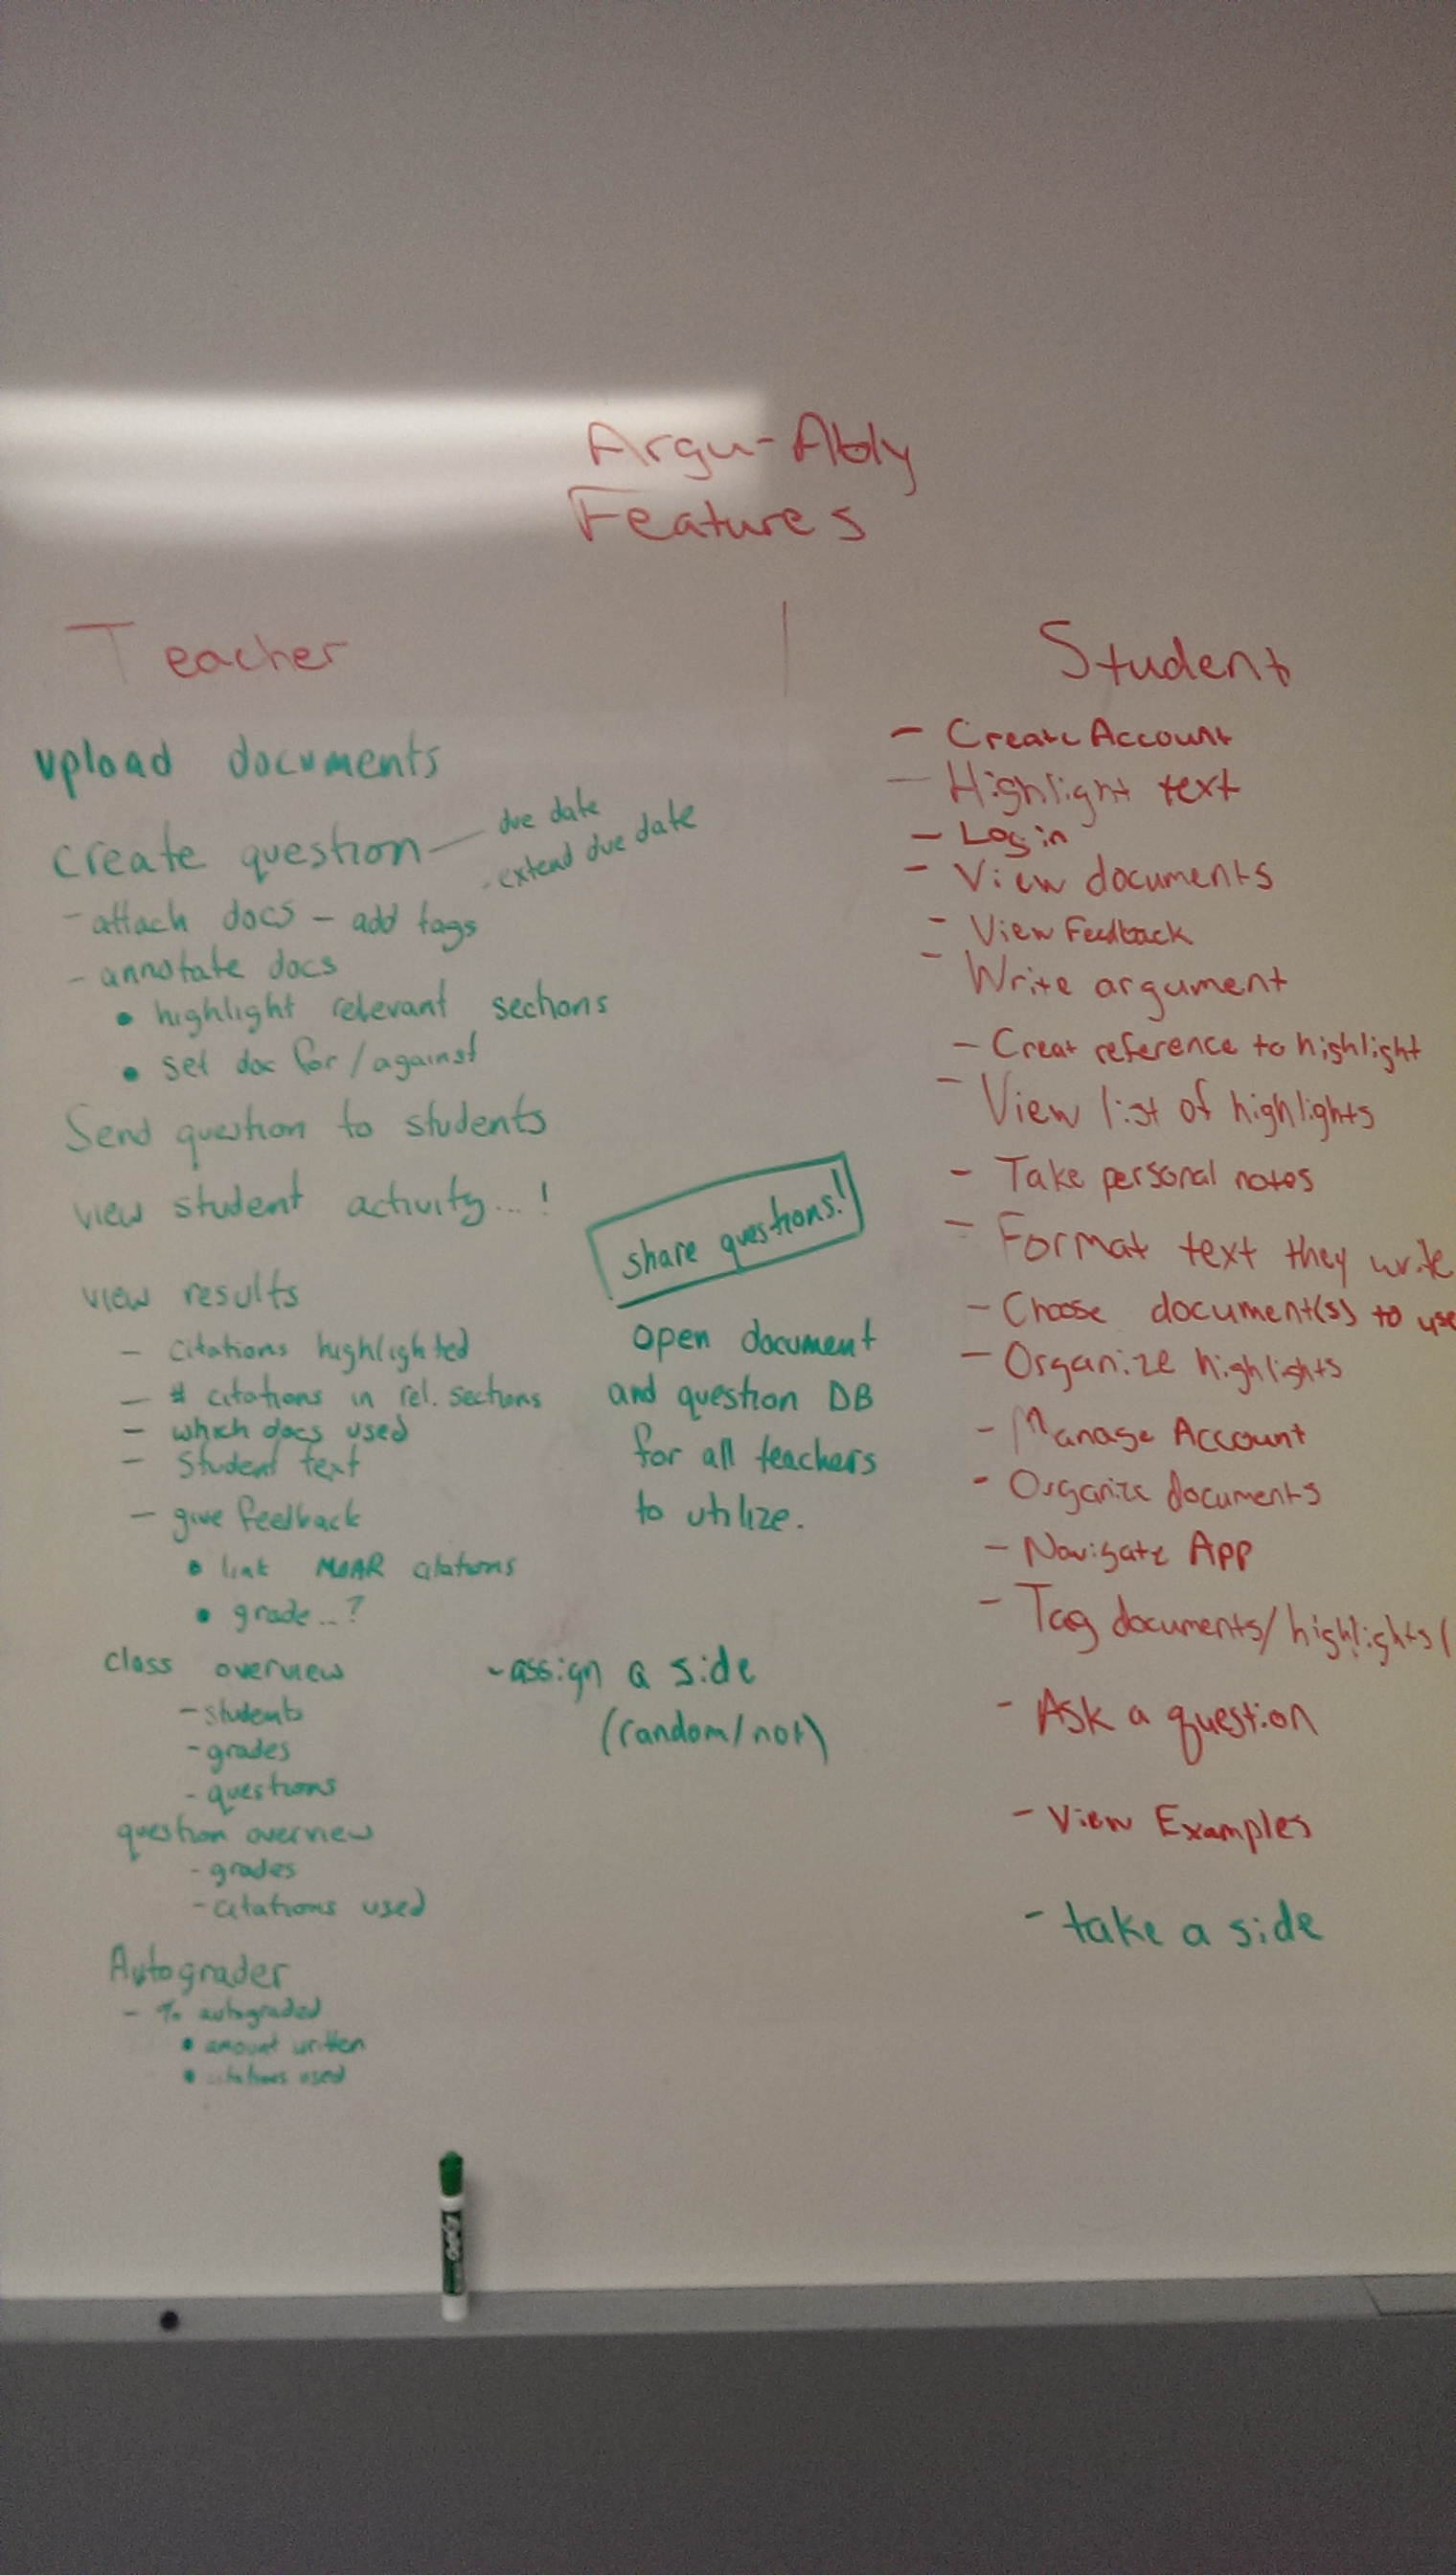 Argu-Ably
Features
Teacher
upload documents
create question — due date
- extend due date
- attach docs - add tags
- annotate docs
• highlight relevant sections
• set doc for/against
Send question to students
view student activity...!
view results
- citations highlighted
- # citations in rel. sections
- which docs used
- Student text
- give feedback
• link MOAR citations
• grade...?
class overview
- students
- grades
- questions
question overview
- grades
- citations used
Autograder
- % autograded
• amount written
• citations used
share questions!
open document
and question DB
for all teachers
to utilize.
- assign a side
(random/not)
Student
- Create Account
- Highlight text
- Log in
- View documents
- View Feedback
- Write argument
- Creat reference to highlight
- View list of highlights
- Take personal notes
- Format text they write
- Choose document(s) to use
- Organize highlights
- Manage Account
- Organize documents
- Navigate App
- Tag documents/highlights/
- Ask a question
- View Examples
- take a side
EXPO